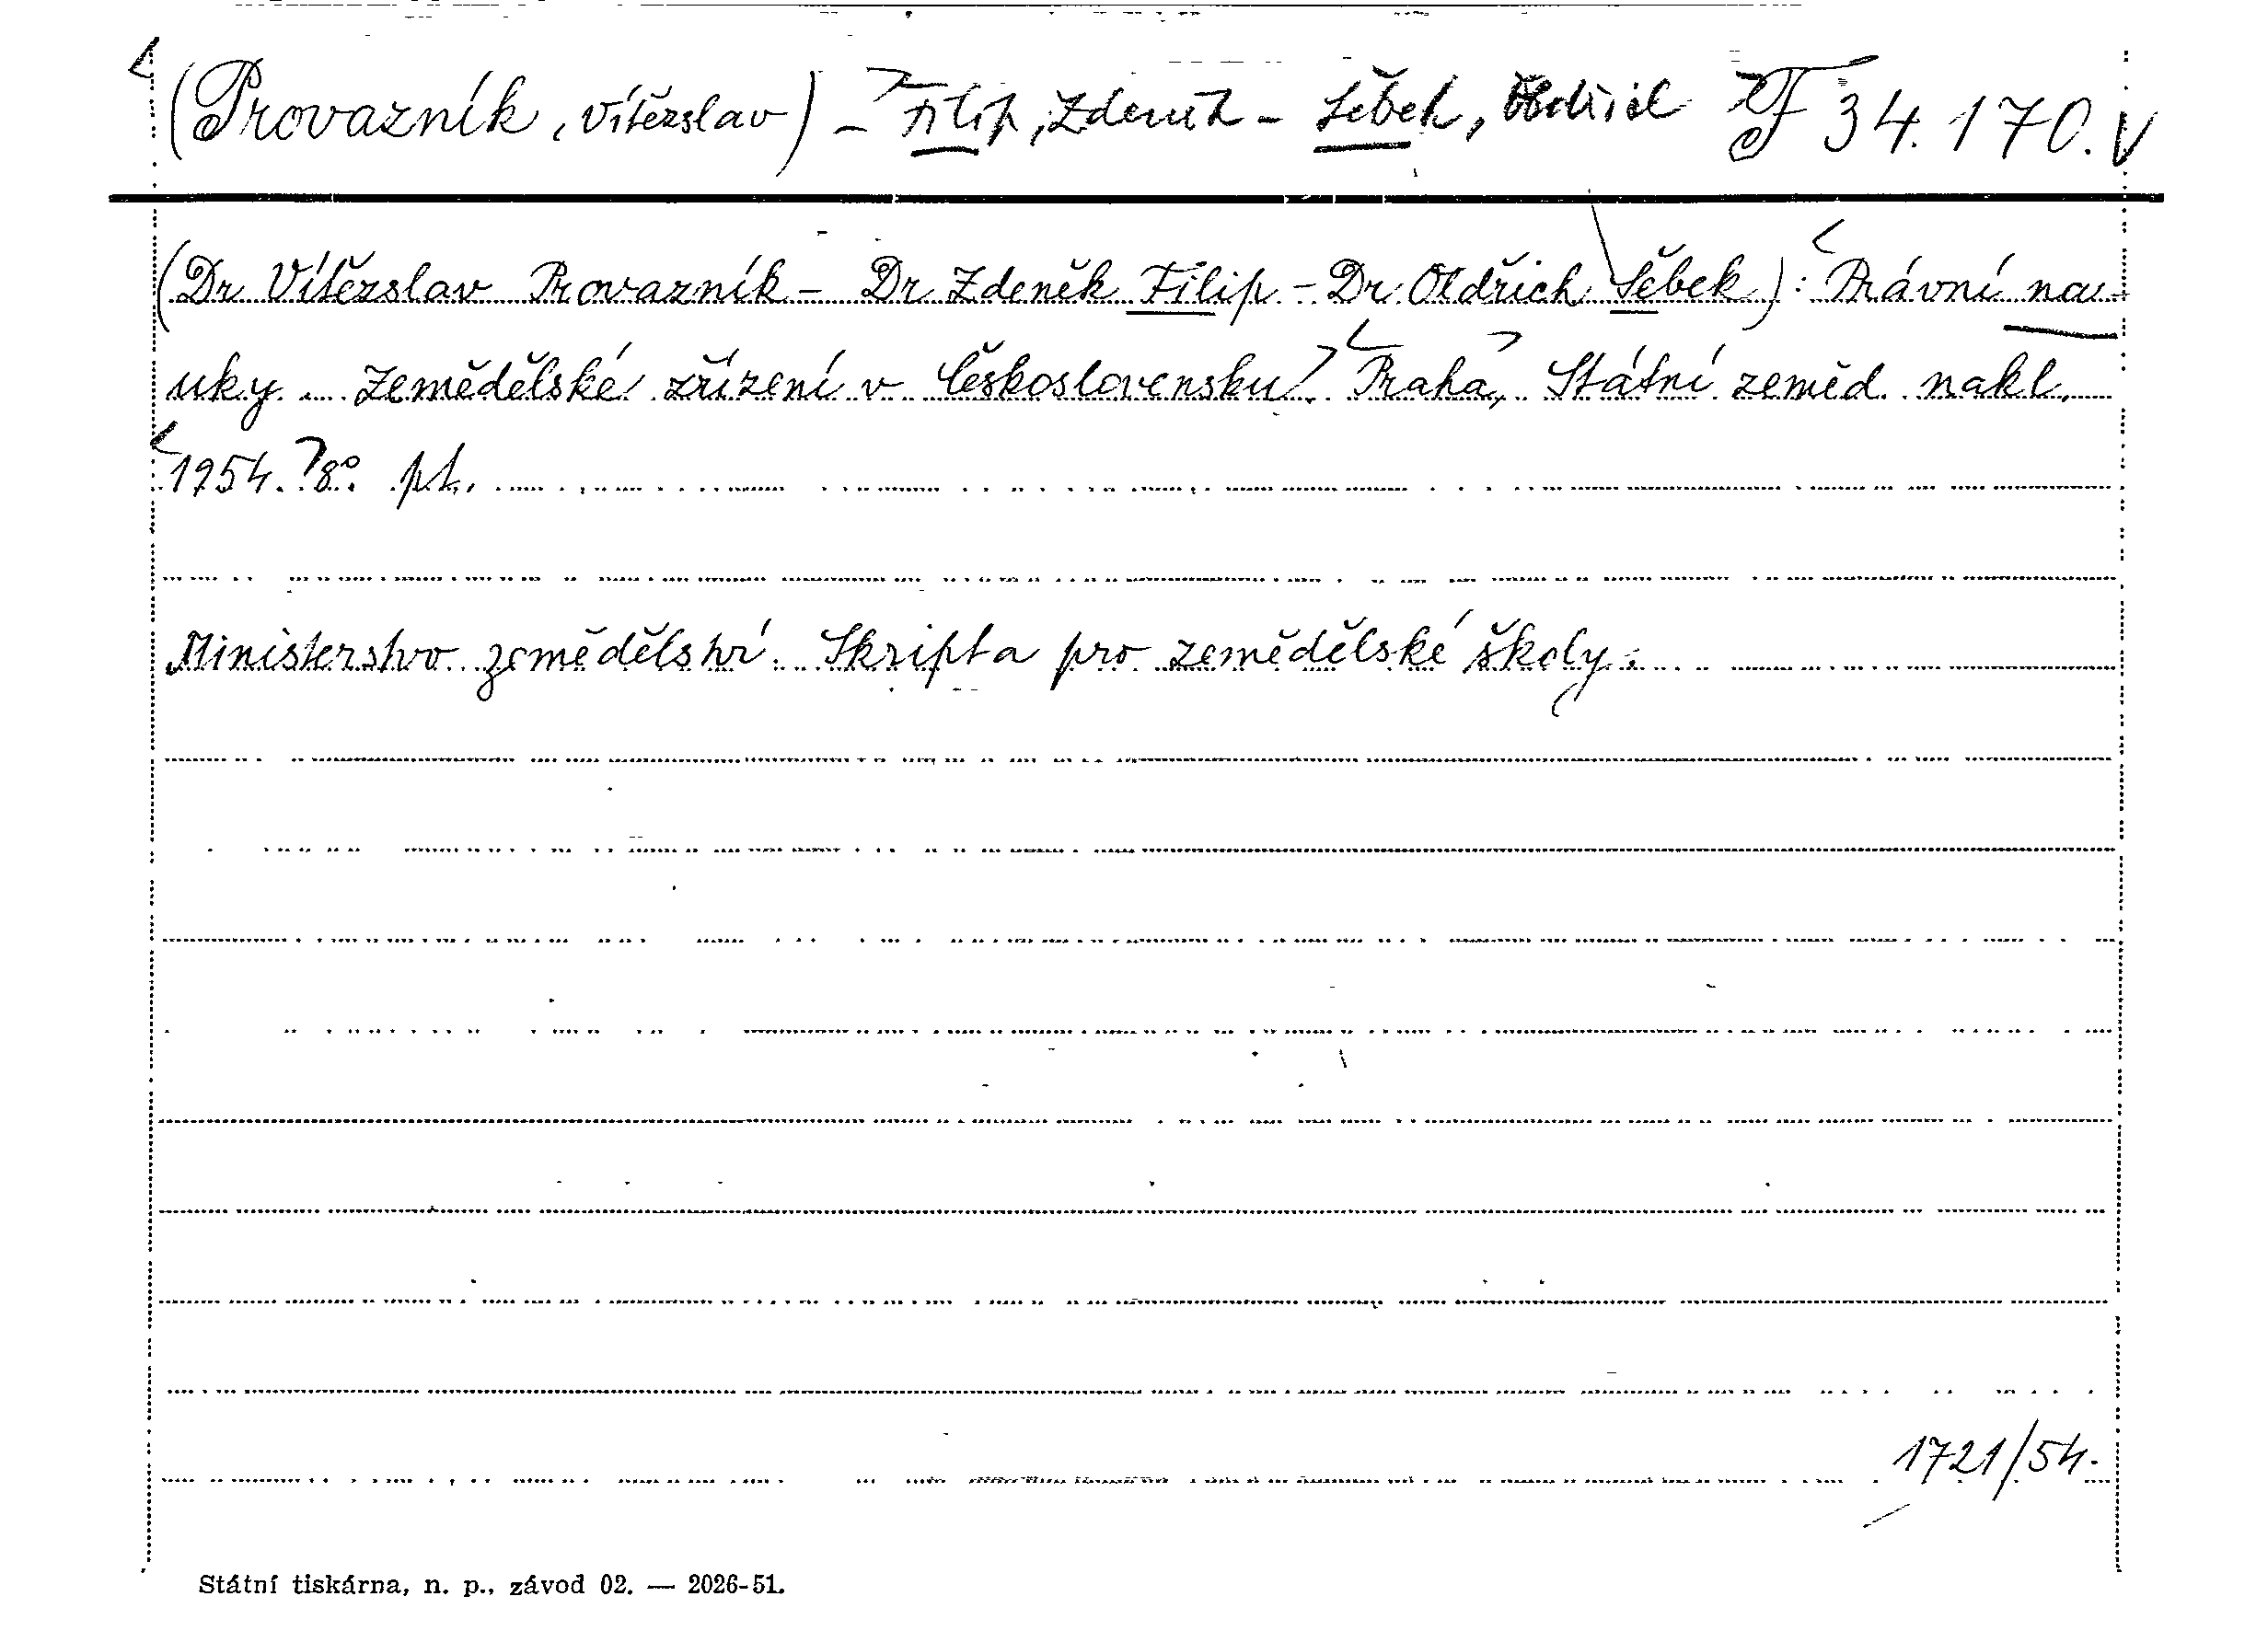 (Provazník, Vítězslav) – Filip, Zdeněk – Šebek, Oldřich F 34.170. V
(Dr Vítězslav Provazník – Dr Zdeněk Filip – Dr Oldřich Šebek): Právní na-
uky. Zemědělské zřízení v Československu. Praha, Státní zeměd. nakl.
1954. 8° pt.
Ministerstvo zemědělství. Skripta pro zemědělské školy.
1721/54.
Státní tiskárna, n. p., závod 02. — 2026-51.